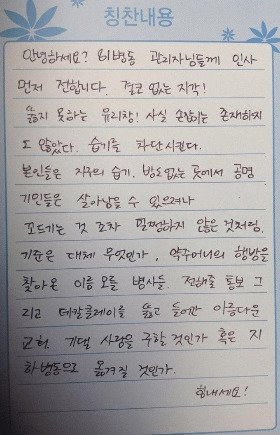 칭찬내용
안녕하세요? 81병동 관리자님들께 인사
먼저 전합니다. 결코 없는 지각!
뚫지 못하는 유리창! 사실 손잡이는 존재하지
도 않았다. 습기를 차단시킨다.
본인들은 지구의 습기. 밤도 없는 곳에서 공명
기인들은 살아남을 수 있으려나
꼬드기는 것 조차 멀쩡하지 않은 것처럼,
기준은 대체 무엇인가, 약주머니의 행방을
찾아온 이름 모를 병사들. 전해줄 통보 그
리고 데칼클레이를 뚫고 들어간 아름다운
교회 기댈 사랑을 구할 것인가 혹은 지
하병동으로 옮겨질 것인가.
힘내세요!